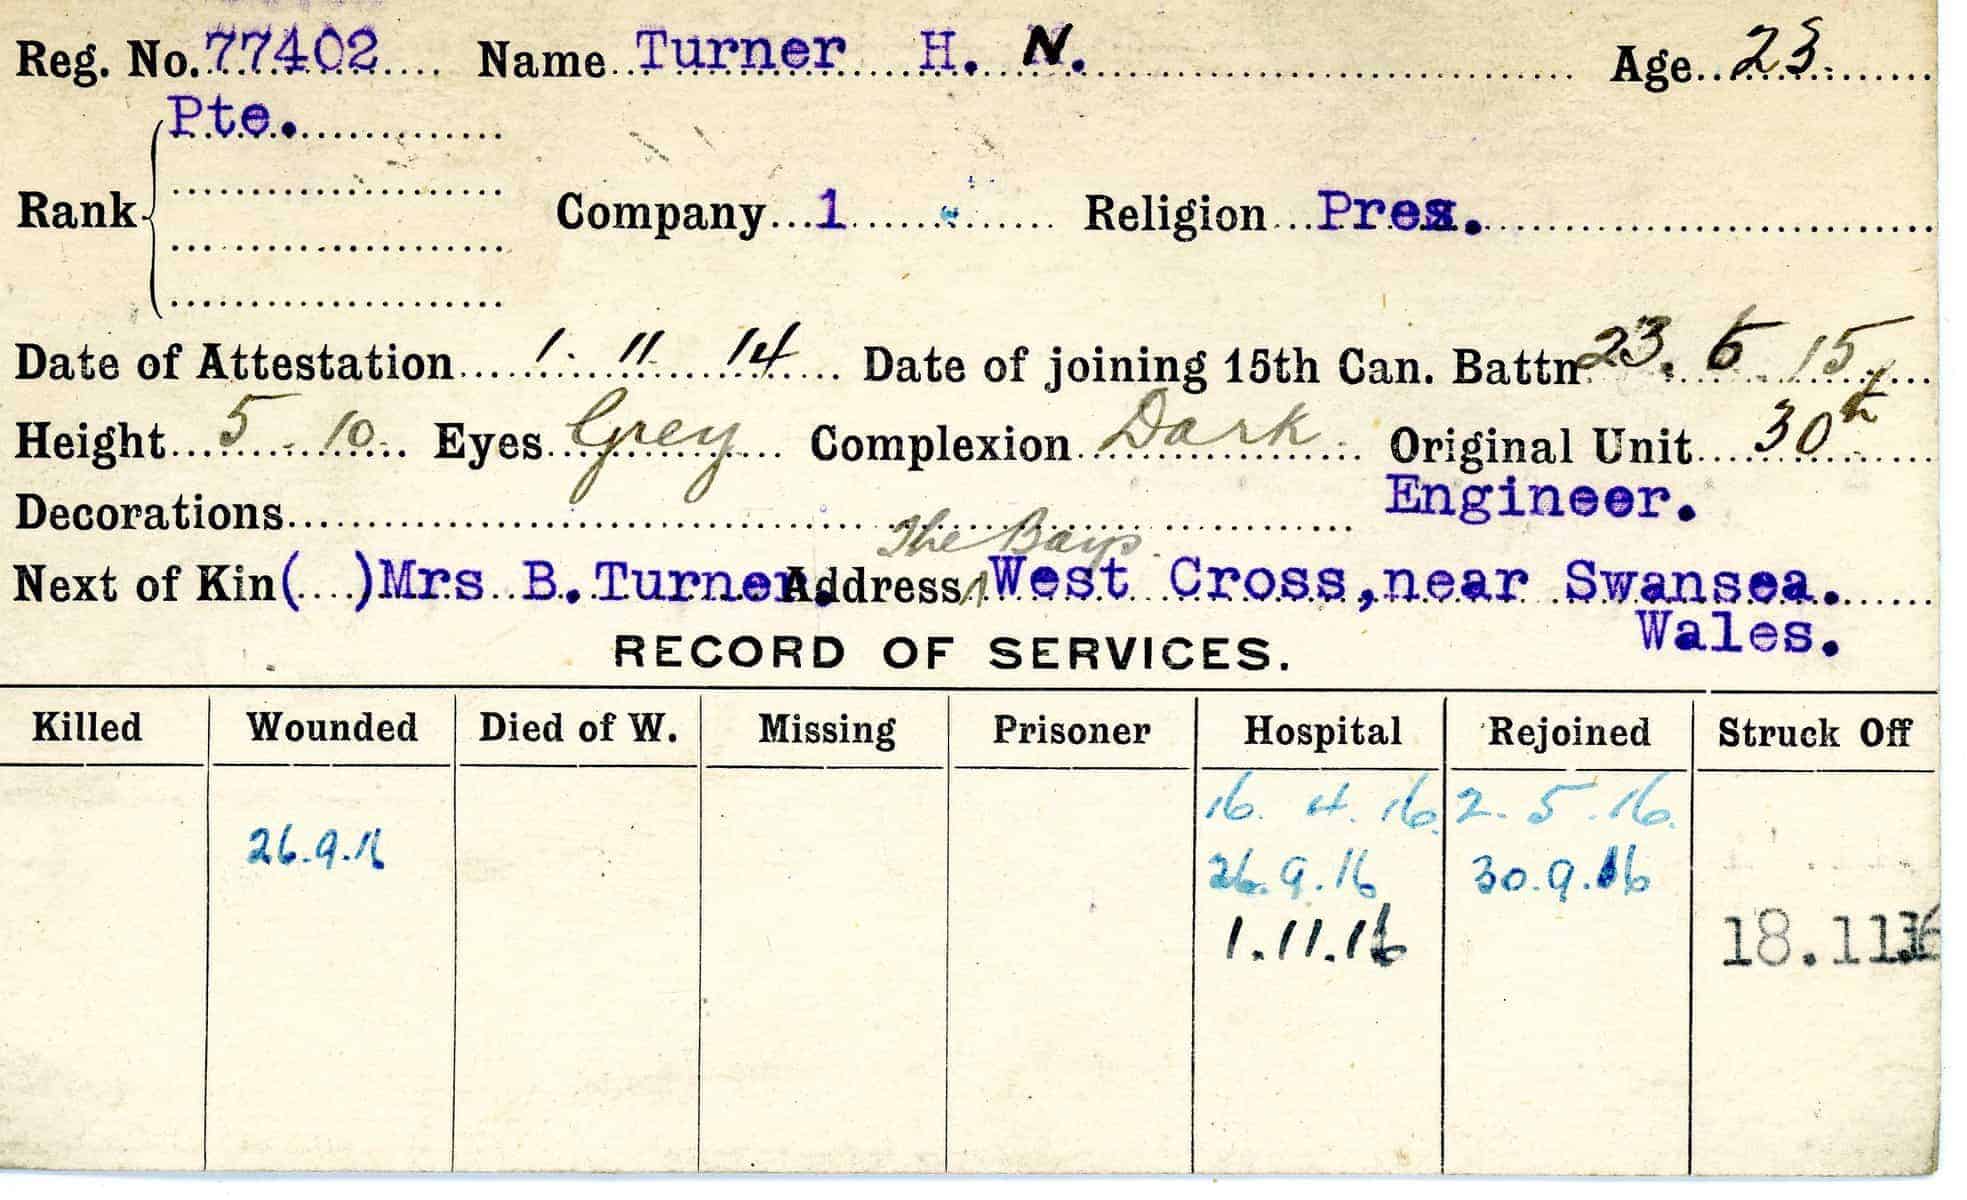 Reg. No. 77402 Name Turner H. N. Age 23
Pte.
Rank Company 1 Religion Pres.
Date of Attestation 1. 11 14 Date of joining 15th Can. Battn. 23. 6 15
Height 5 . 10 Eyes Grey Complexion Dark Original Unit 30th
Decorations Engineer.
The Bays
Next of Kin (....) Mrs B. Turner. Address West Cross, near Swansea.
Wales.
RECORD OF SERVICES.
Killed Wounded Died of W. Missing Prisoner Hospital Rejoined Struck Off
16. 4. 16. 2. 5. 16.
26.9.16 26.9.16 30.9.16
1.11.16 18.11.16